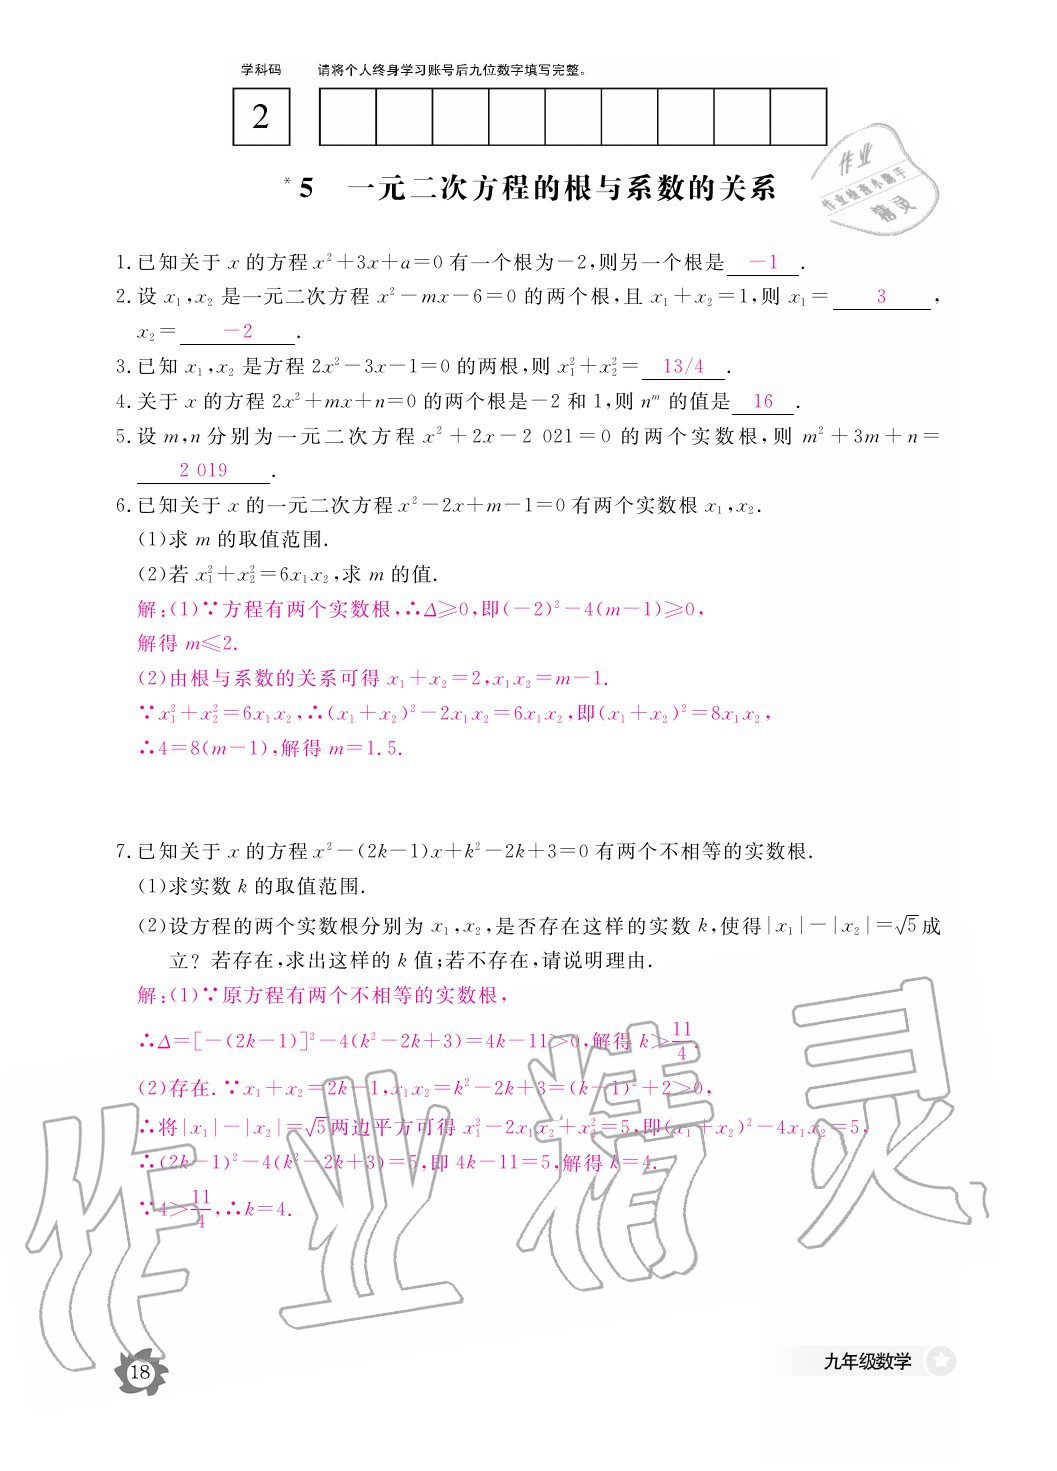 学科码 请将个人终身学习账号后九位数字填写完整。
2
作业
作业检查小助手
精灵
*5 一元二次方程的根与系数的关系
1. 已知关于 x 的方程 x²+3x+a=0 有一个根为-2,则另一个根是 -1 .
2. 设 x₁,x₂ 是一元二次方程 x²-mx-6=0 的两个根,且 x₁+x₂=1,则 x₁= 3 ,
x₂= -2 .
3. 已知 x₁,x₂ 是方程 2x²-3x-1=0 的两根,则 x₁²+x₂²= 13/4 .
4. 关于 x 的方程 2x²+mx+n=0 的两个根是-2 和 1,则 nᵐ 的值是 16 .
5. 设 m,n 分别为一元二次方程 x²+2x-2 021=0 的两个实数根,则 m²+3m+n=
2 019 .
6. 已知关于 x 的一元二次方程 x²-2x+m-1=0 有两个实数根 x₁,x₂.
(1)求 m 的取值范围.
(2)若 x₁²+x₂²=6x₁x₂,求 m 的值.
解:(1)∵方程有两个实数根,∴Δ≥0,即(-2)²-4(m-1)≥0,
解得 m≤2.
(2)由根与系数的关系可得 x₁+x₂=2,x₁x₂=m-1.
∵x₁²+x₂²=6x₁x₂,∴(x₁+x₂)²-2x₁x₂=6x₁x₂,即(x₁+x₂)²=8x₁x₂,
∴4=8(m-1),解得 m=1.5.
7. 已知关于 x 的方程 x²-(2k-1)x+k²-2k+3=0 有两个不相等的实数根.
(1)求实数 k 的取值范围.
(2)设方程的两个实数根分别为 x₁,x₂,是否存在这样的实数 k,使得|x₁|-|x₂|=√5成
立?若存在,求出这样的 k 值;若不存在,请说明理由.
解:(1)∵原方程有两个不相等的实数根,
∴Δ=[-(2k-1)]²-4(k²-2k+3)=4k-11>0,解得 k>11/4.
(2)存在.∵x₁+x₂=2k-1,x₁x₂=k²-2k+3=(k-1)²+2>0,
∴将|x₁|-|x₂|=√5两边平方可得 x₁²-2x₁x₂+x₂²=5,即(x₁+x₂)²-4x₁x₂=5,
∴(2k-1)²-4(k²-2k+3)=5,即 4k-11=5,解得 k=4.
∵4>11/4,∴k=4.
作业精灵
18
九年级数学